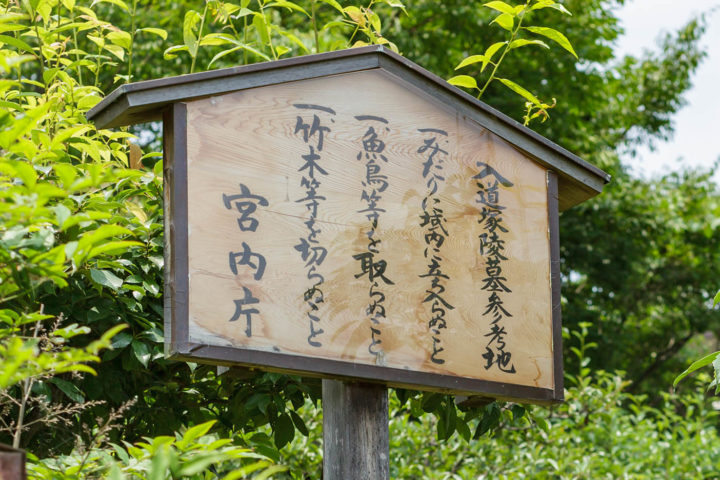 入道塚陵墓参考地
一みだりに域内に立ち入らぬこと
一魚鳥等を取らぬこと
一竹木等を切らぬこと
宮内庁